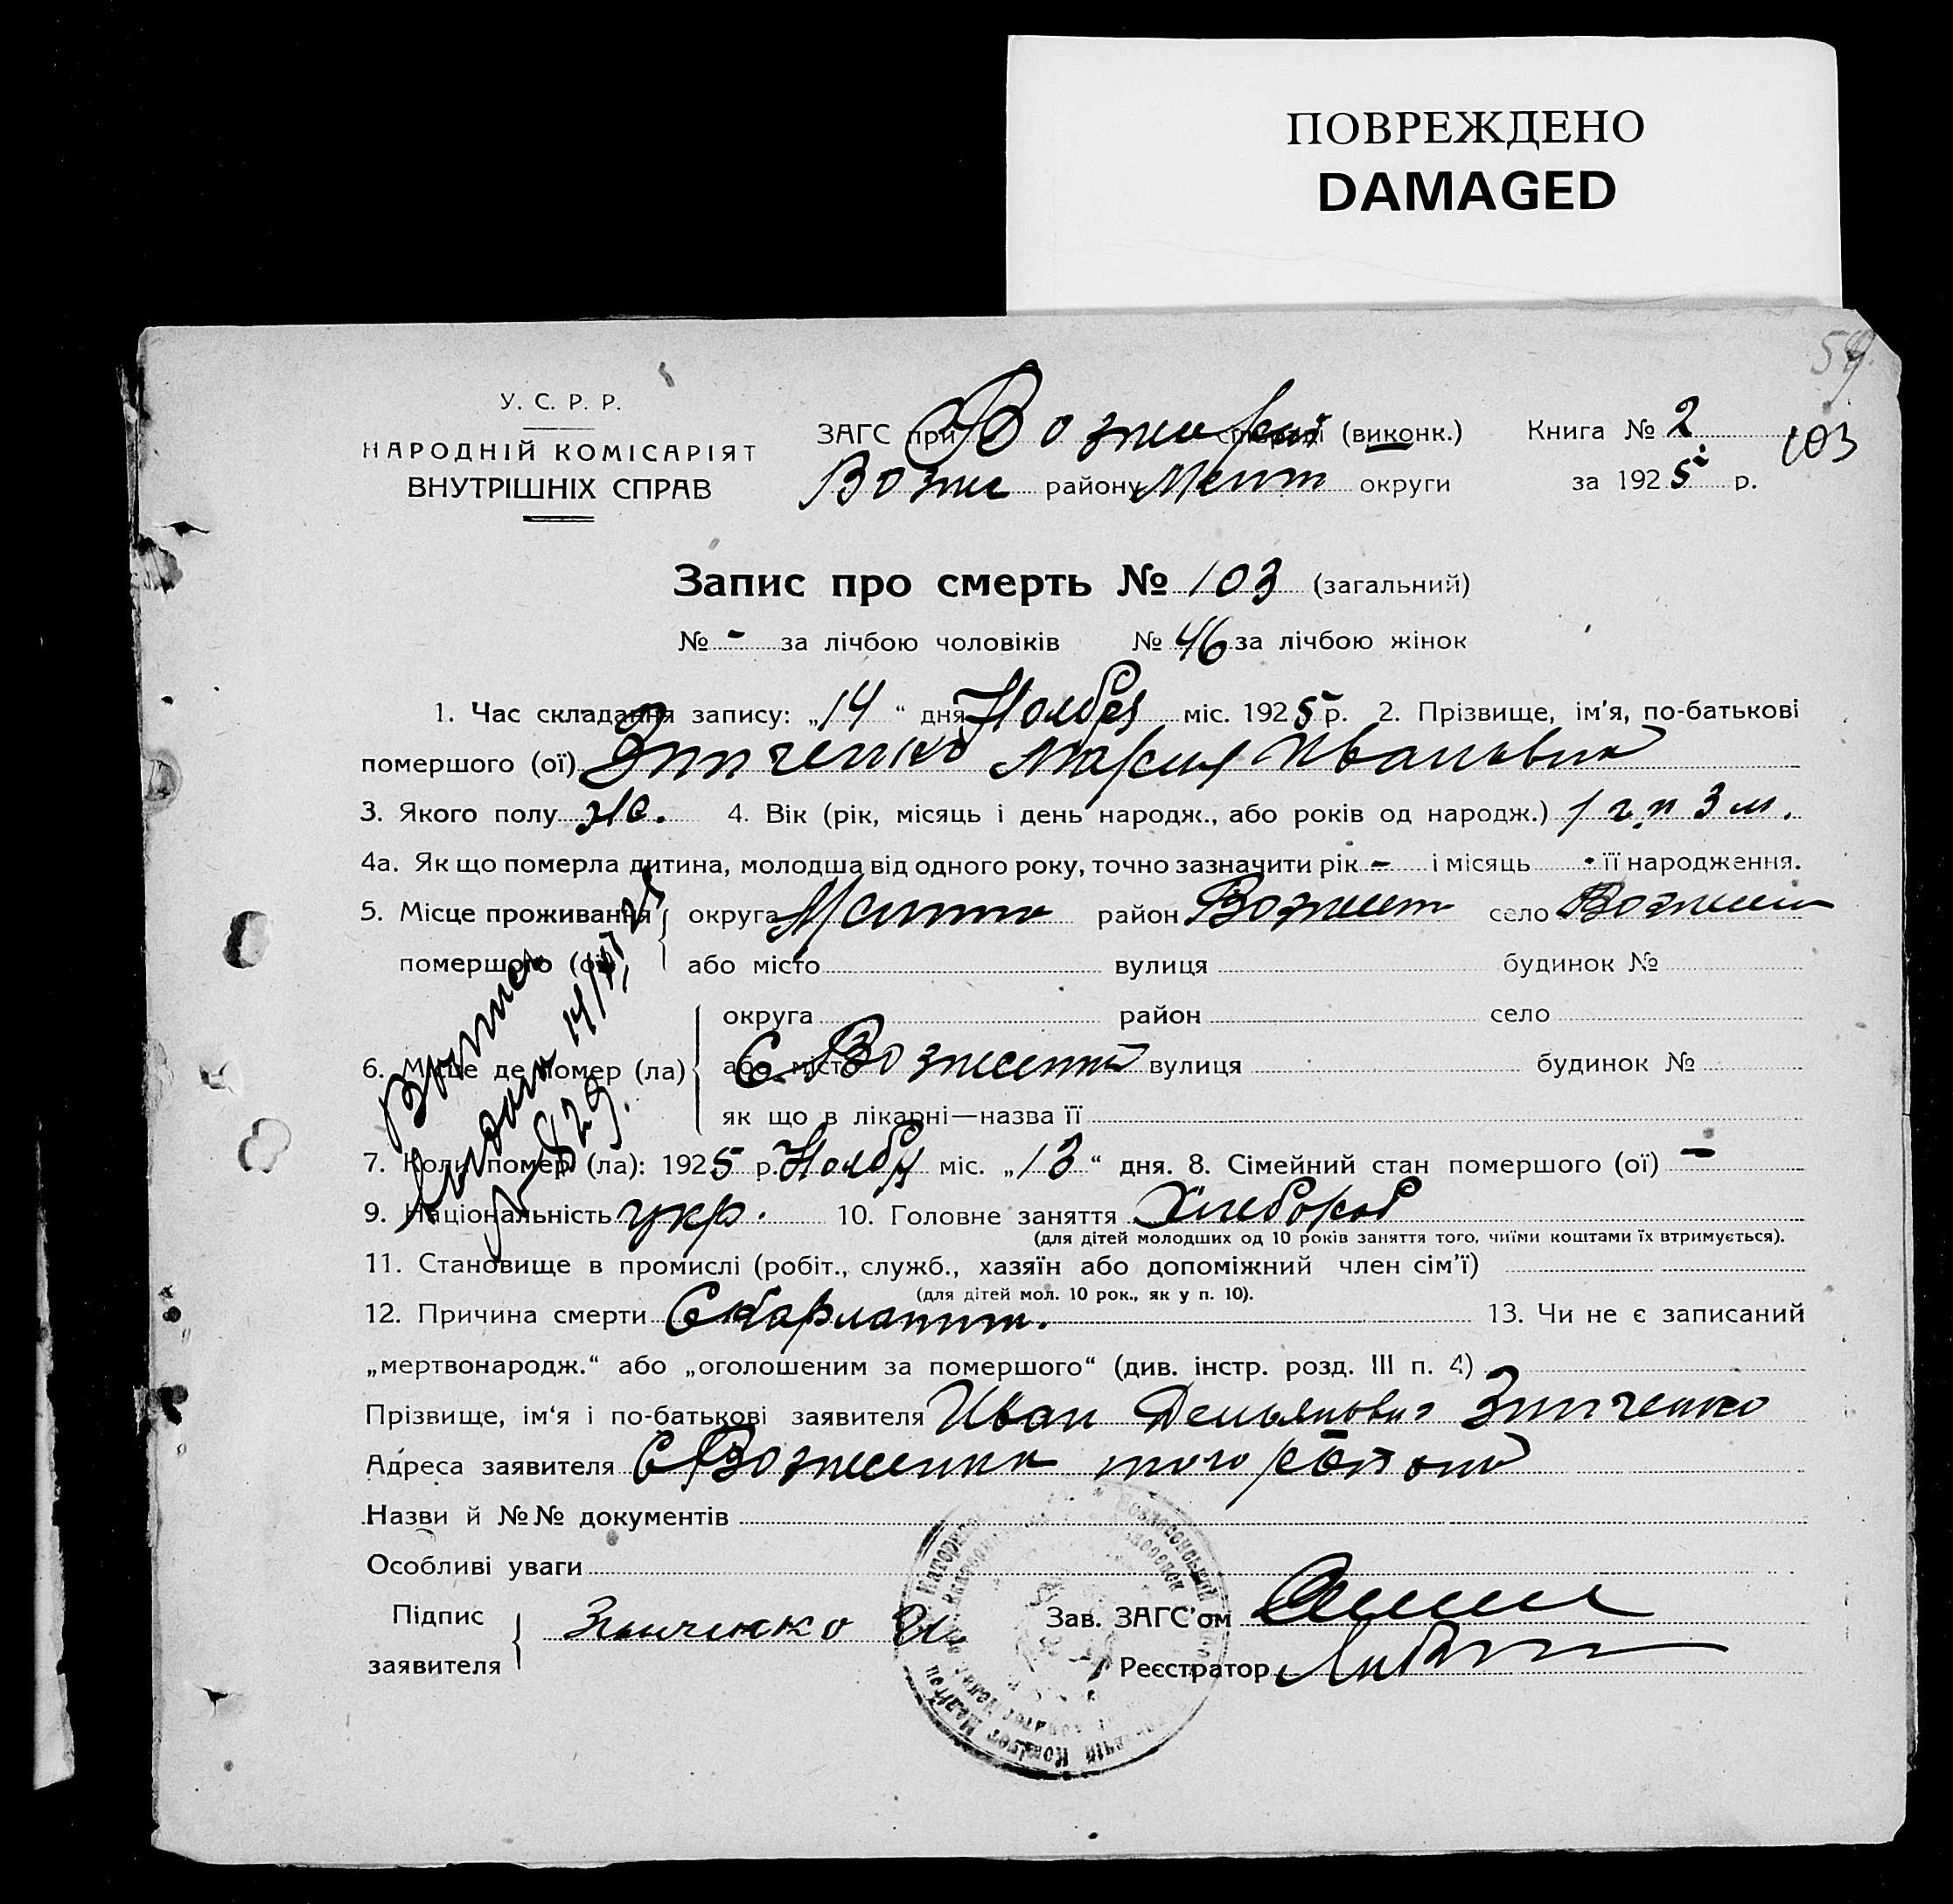 ПОВРЕЖДЕНО
DAMAGED
59.
У. С. Р. Р.
НАРОДНІЙ КОМІСАРІЯТ
ВНУТРІШНІХ СПРАВ
ЗАГС при (виконк.)
Возне району Меліт округи
Книга № 2 103
за 1925 р.
Запис про смерть № 103 (загальний)
№ - за лічбою чоловіків № 46 за лічбою жінок
1. Час складання запису: „14“ дня Ноября міс. 1925 р. 2. Прізвище, ім’я, по-батькові
помершого (ої) Зинченко Мария Ивановна
3. Якого полу ж. 4. Вік (рік, місяць і день народж., або років од народж.) 1 г. и 3 м.
4а. Як що померла дитина, молодша від одного року, точно зазначити рік - і місяць - її народження.
5. Місце проживання округа район село
помершого (ої) або місто вулиця будинок №
округа район село
6. Місце де помер (ла) або місто С. вулиця будинок №
як що в лікарні—назва її
7. Коли помер (ла): 1925 р. Ноября міс. „13“ дня. 8. Сімейний стан помершого (ої) -
9. Національність укр. 10. Головне заняття Хлебороб
(для дітей молодших од 10 років заняття того, чиїми коштами їх втримується).
11. Становище в промислі (робіт., служб., хазяїн або допоміжний член сім’ї)
(для дітей мол. 10 рок., як у п. 10).
12. Причина смерти Скарлатин. 13. Чи не є записаний
„мертвонародж.“ або „оголошеним за помершого“ (див. інстр. розд. III п. 4)
Прізвище, ім‘я і по-батькові заявителя Иван Демьянович Зинченко
Адреса заявителя С Вознесенка того района
Назви й №№ документів
Особливі уваги
Підпис
заявителя
Зинченко И
Зав. ЗАГС’ом
Реєстратор